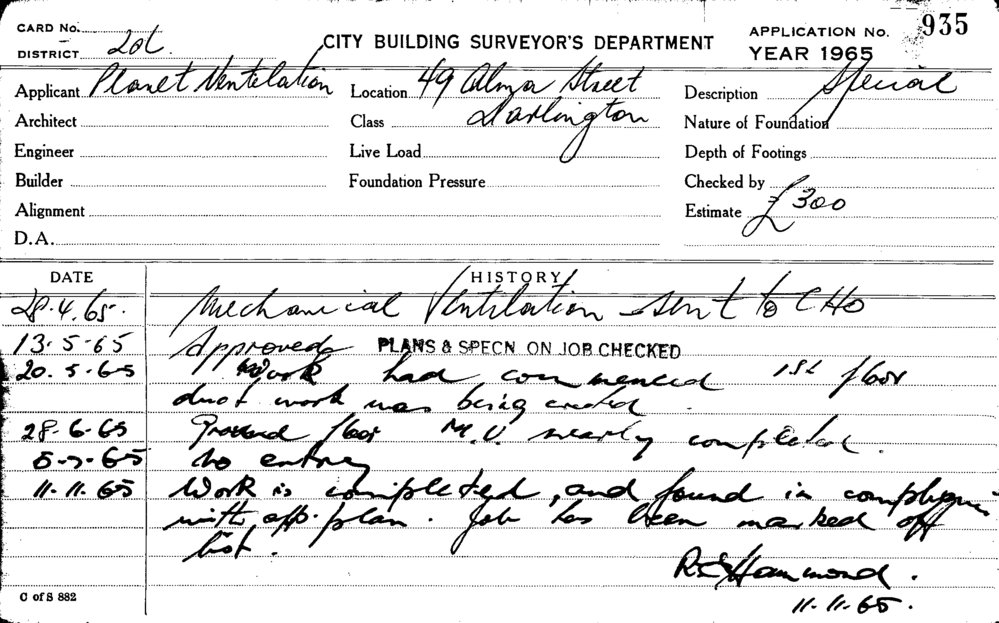 CARD No.
DISTRICT
CITY BUILDING SURVEYOR'S DEPARTMENT
APPLICATION No. 935
YEAR 1965
Applicant Planet Ventilation
Location 49 Alma Street
Darlington
Description Special
Architect
Class
Nature of Foundation
Engineer
Live Load
Depth of Footings
Builder
Foundation Pressure
Checked by
Alignment
Estimate £300
D.A.
DATE HISTORY
28.4.65. Mechanical Ventilation sent to CHO
13.5-65 Approved PLANS & SPECN ON JOB CHECKED
20.5-65 Work had commenced 1st floor
duct work was being erected.
28.6.65 Ground floor M.V. nearly completed.
8-7-65 No entry
11.11.65 Work is completed, and found in
with app. plan. Job has been marked off
list.
R Hammond.
11.11.65.
C of S 882